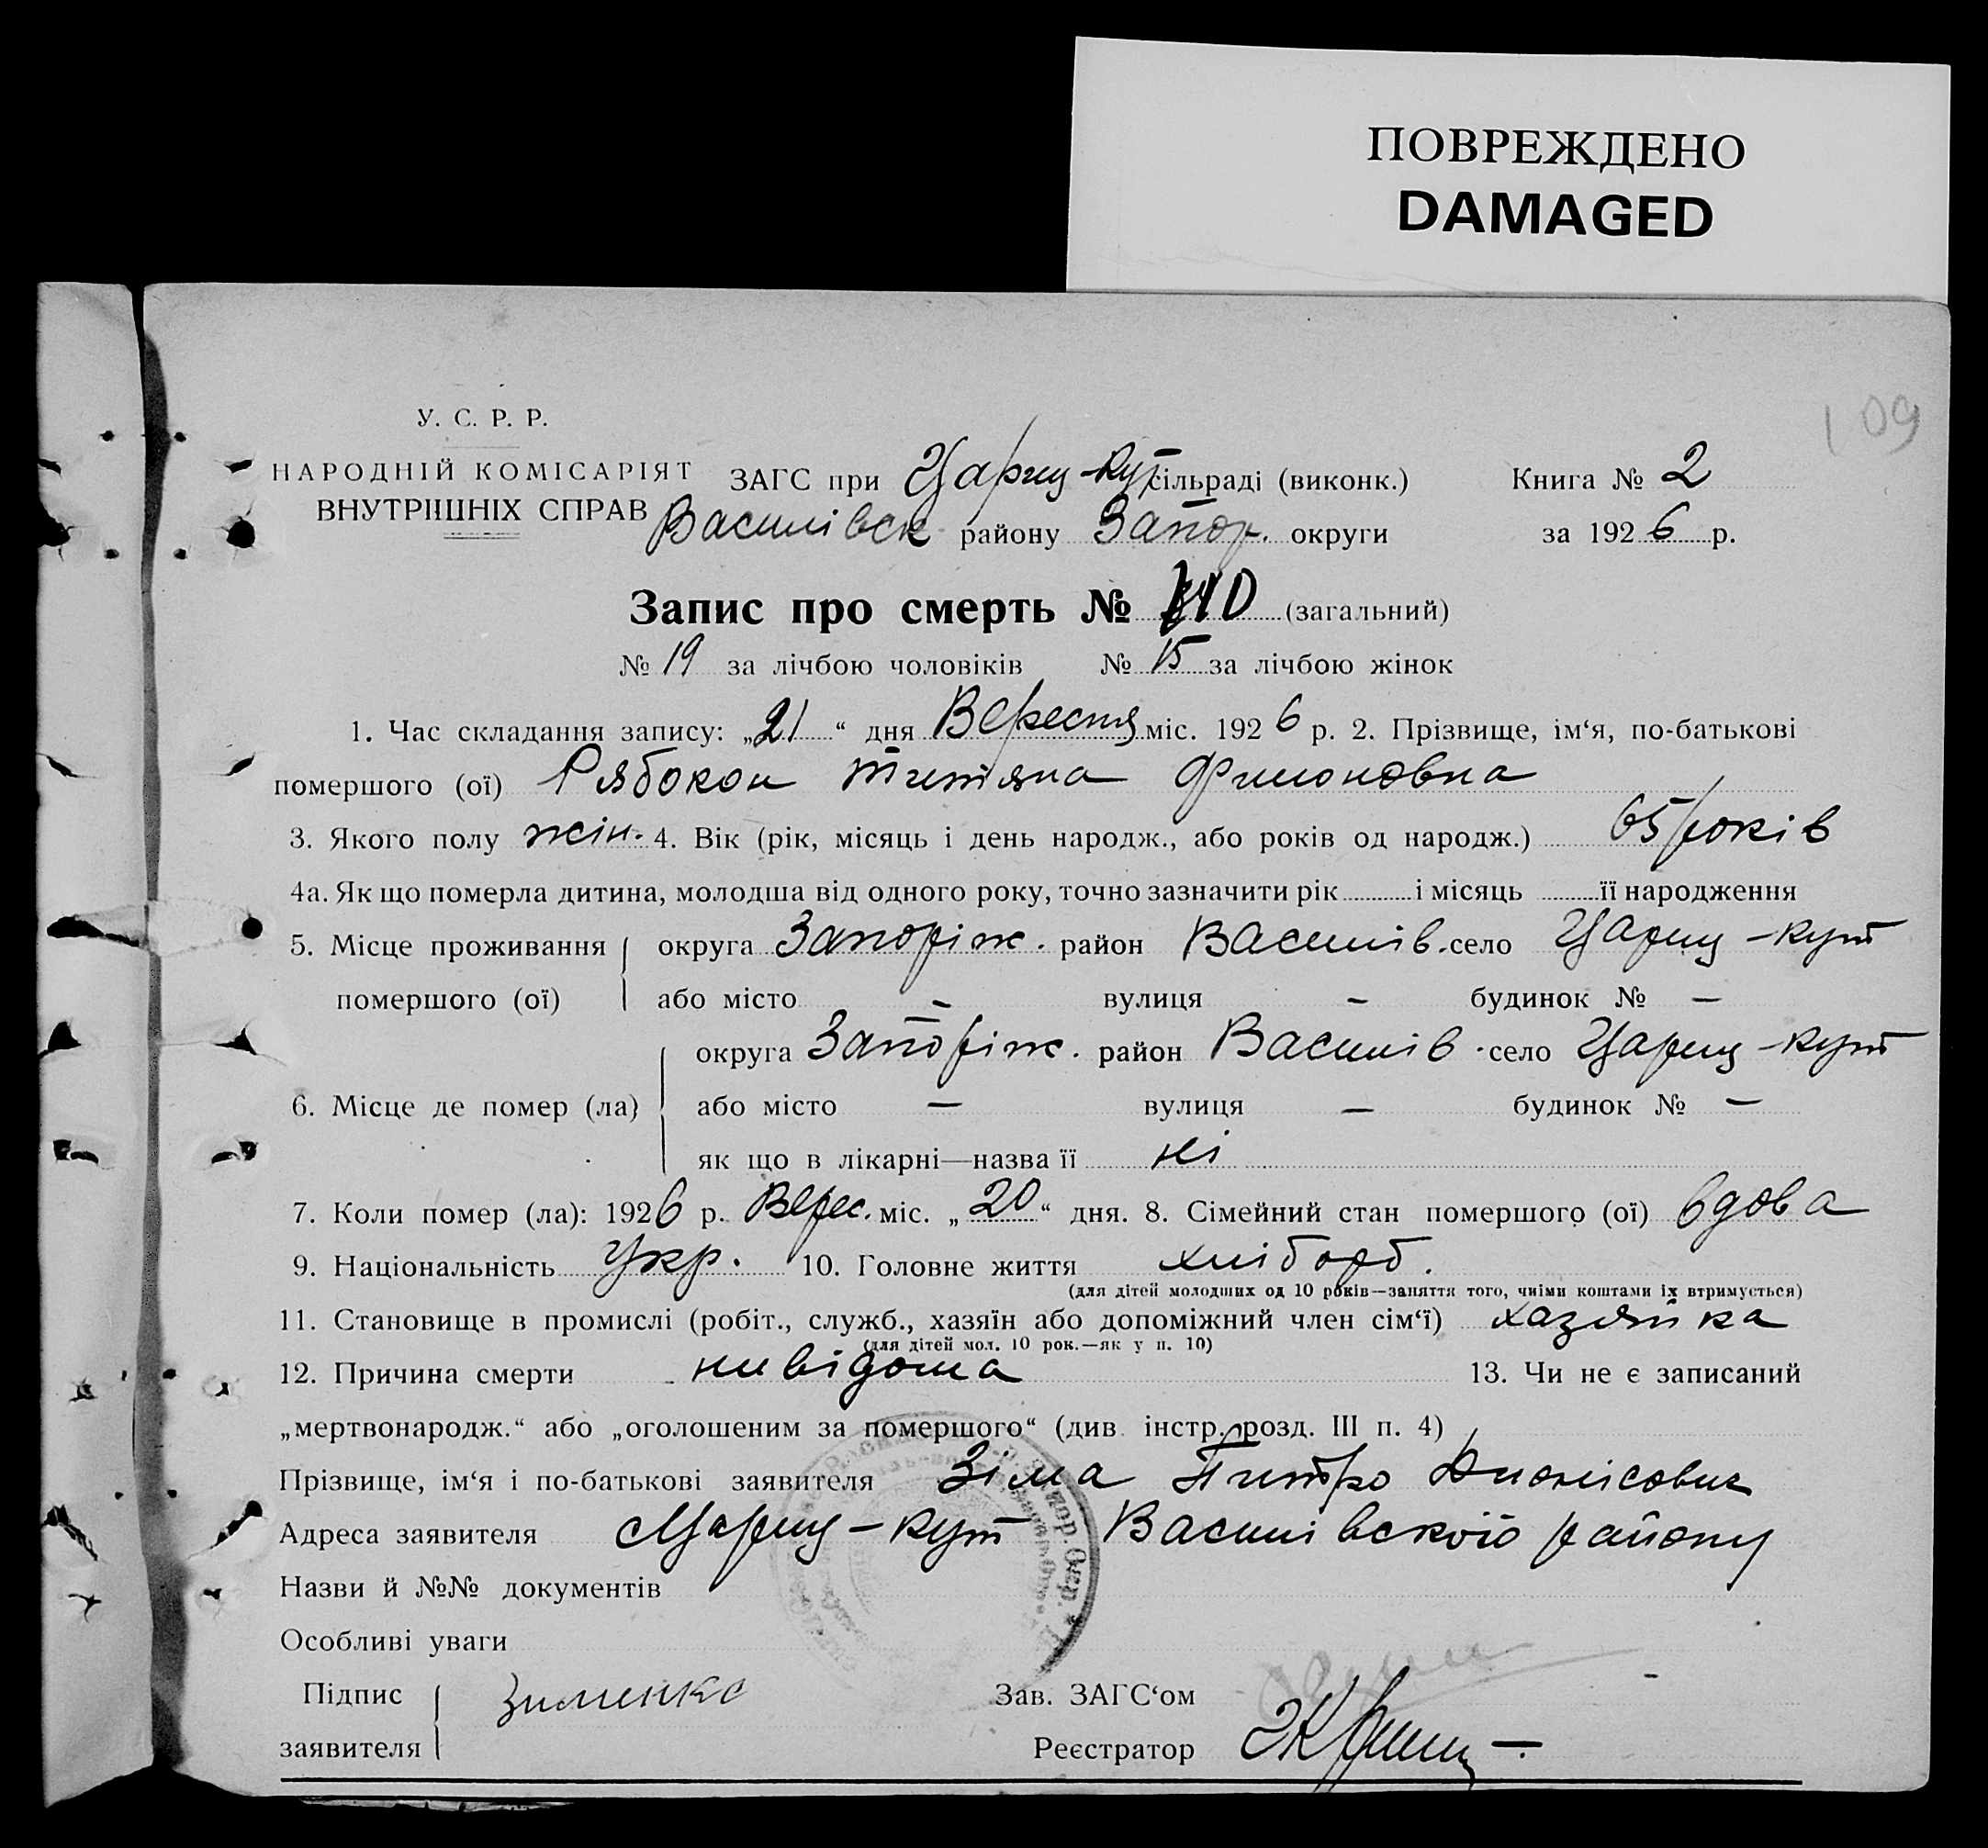 ПОВРЕЖДЕНО
DAMAGED
109
У. С. Р. Р.
НАРОДНІЙ КОМІСАРІЯТ
ВНУТРІШНІХ СПРАВ
ЗАГС при Цариц-кут сільраді (виконк.) Книга № 2
Василівск району Запор. округи за 1926 р.
Запис про смерть № (загальний)
№ 19 за лічбою чоловіків № 15 за лічбою жінок
1. Час складання запису: „21“ дня Вересня міс. 1926 р. 2. Прізвище, ім‘я, по-батькові
помершого (ої) Рябокон Титяна Филоновна
3. Якого полу жін. 4. Вік (рік, місяць і день народж., або років од народж.) 65 років
4а. Як що померла дитина, молодша від одного року, точно зазначити рік і місяць її народження
5. Місце проживання помершого (ої) округа Запоріж. район Василів. село Цариц-кут
або місто — вулиця — будинок № —
6. Місце де помер (ла) округа Запоріж. район Василів. село Цариц-кут
або місто — вулиця — будинок № —
як що в лікарні—назва її ні
7. Коли помер (ла): 1926 р. Верес. міс. „20“ дня. 8. Сімейний стан помершого (ої) вдова
9. Національність Укр. 10. Головне життя хлібороб.
(для дітей молодших од 10 років—заняття того, чиїми коштами їх втримується)
11. Становище в промислі (робіт., служб., хазяїн або допоміжний член сім‘ї) хазяйка
(для дітей мол. 10 рок.—як у п. 10)
12. Причина смерти нивідома 13. Чи не є записаний
„мертвонародж.“ або „оголошеним за помершого“ (див. інстр. розд. III п. 4)
Прізвище, ім‘я і по-батькові заявителя Зіма Питро Дионісович
Адреса заявителя Цариц-кут Василівского району
Назви й №№ документів
Особливі уваги
Підпис заявителя Зименко
Зав. ЗАГС‘ом
Реєстратор